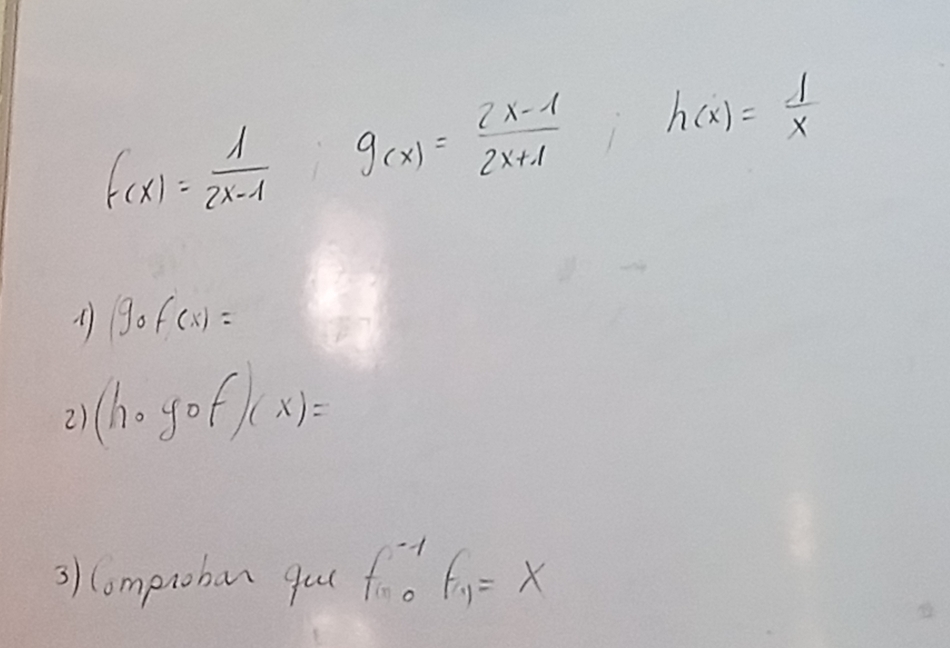 f(x) = 1/(2x-1) ; g(x) = (2x-1)/(2x+1) ; h(x) = 1/x
1) (gof(x) =
2) (h o g o f)(x) =
3) Comprobar que f⁻¹(x) o f(x) = X